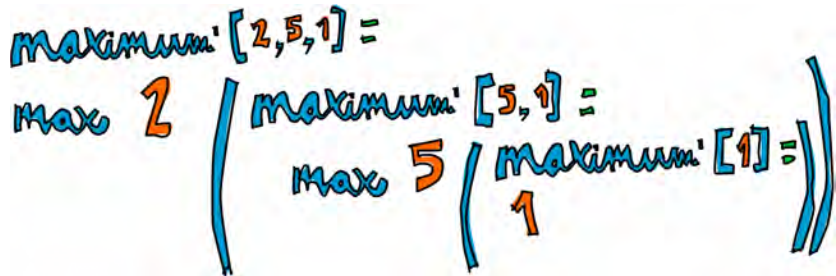 maximum' [2,5,1] =
max 2 (maximum' [5,1] =
max 5 (maximum' [1] =
1))